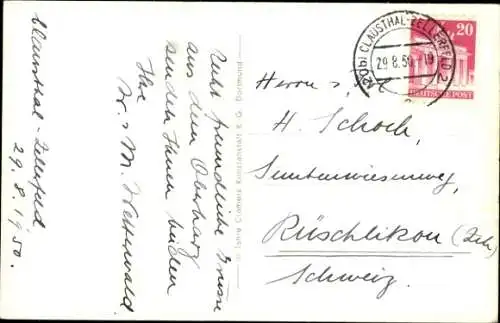 Clausthal-Zellerfeld
29. 8. 1950.
Recht freundliche Grüsse
aus dem Oberharz
senden Ihnen beiden
Ihre
W. & M. Wettenwald.
Cramers Kunstanstalt K. G. Dortmund
(20b) CLAUSTHAL-ZELLERFELD 2
29.8.50
20
DEUTSCHE POST
Herrn
H. Schoch,
Rüschlikon (Zch)
Schweiz.